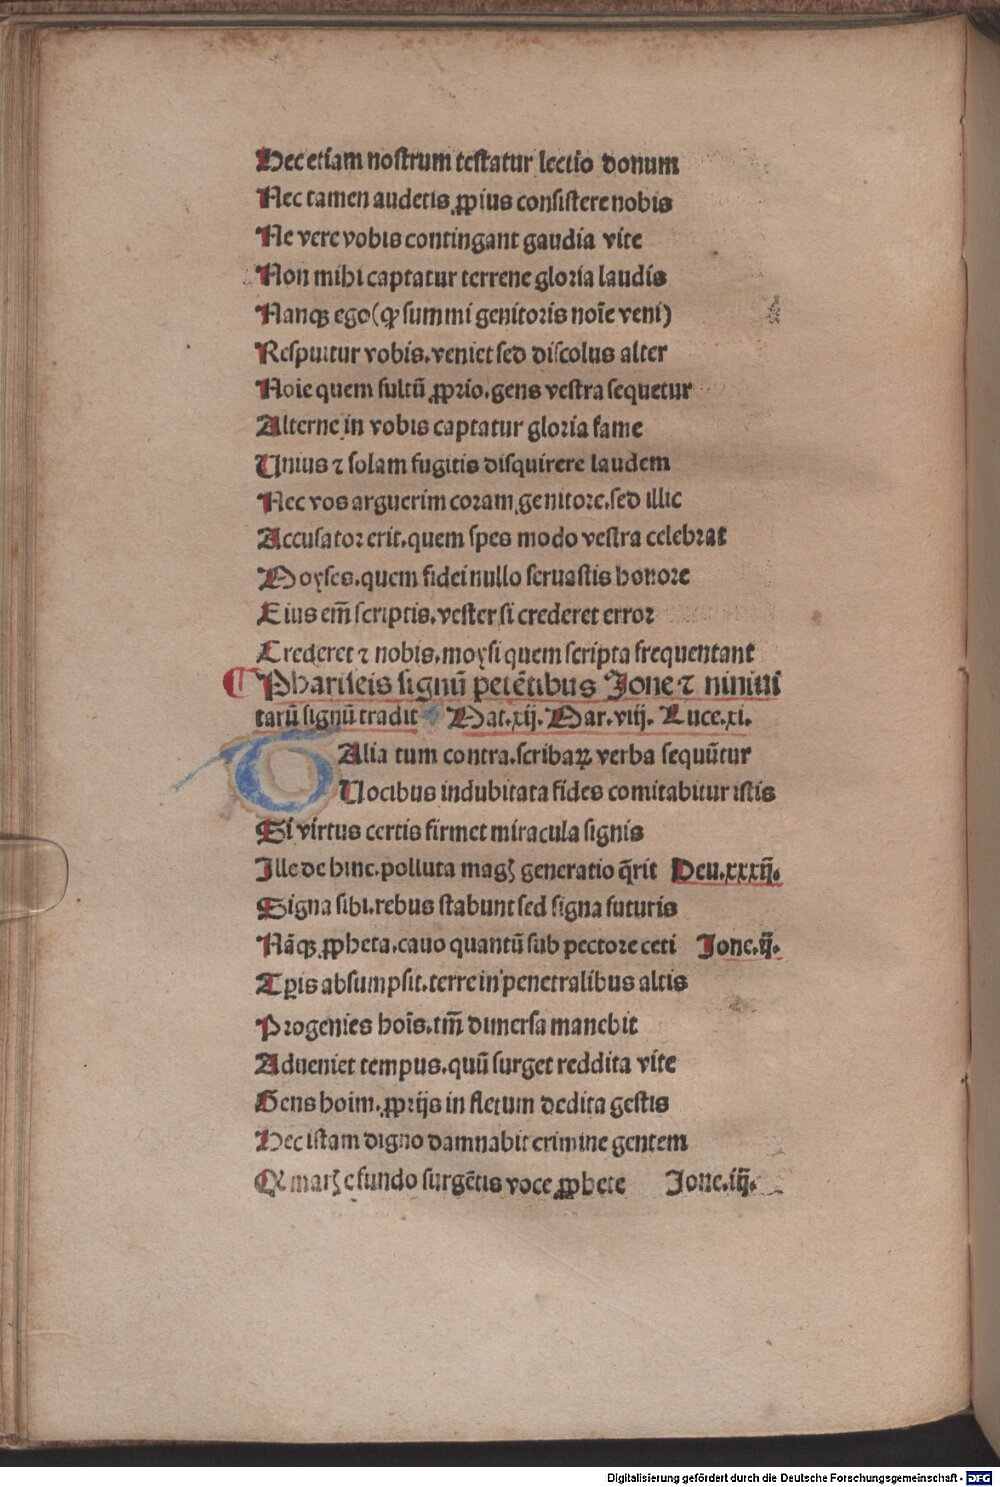 Hec etiam nostrum testatur lectio donum
Nec tamen audetis ꝓpius consistere nobis
Ne vere vobis contingant gaudia vite
Non mihi captatur terrene gloria laudis
Nanqꝫ ego (ꝙ summi genitoris noīe veni)
Respuitur vobis. veniet sed discolus alter
Noie quem fultū ꝓprio. gens vestra sequetur
Alterne in vobis captatur gloria fame
Unius ⁊ solam fugitis disquirere laudem
Nec vos arguerim coram genitore. sed illic
Accusator erit. quem spes modo vestra celebrat
Moyses. quem fidei nullo seruastis honore
Eius em̄ scriptis. vester si crederet error
Crederet ⁊ nobis. moysi quem scripta frequentant
¶ Phariseis signū petētibus Jone ⁊ niniui
tarū signū tradit Mat.xij. Mar.viij. Luce.xi.
TAlia tum contra. scribaꝝ verba sequūtur
Uocibus indubitata fides comitabitur istis
Si virtus certis firmet miracula signis
Ille dehinc. polluta magꝫ generatio q̄rit Deu.xxxij.
Signa sibi. rebus stabunt sed signa futuris
Nāqꝫ ꝓpheta. cauo quantū sub pectore ceti Jone.ij.
Tꝑis absumpsit. terre in penetralibus altis
Progenies hoīs. tm̄ dimersa manebit
Adueniet tempus. quū surget reddita vite
Gens hoim. ꝓprijs in fletum dedita gestis
Hec istam digno damnabit crimine gentem
Q marꝫ e fundo surgētis voce ꝓphete Jone.iij.
Digitalisierung gefördert durch die Deutsche Forschungsgemeinschaft - DFG